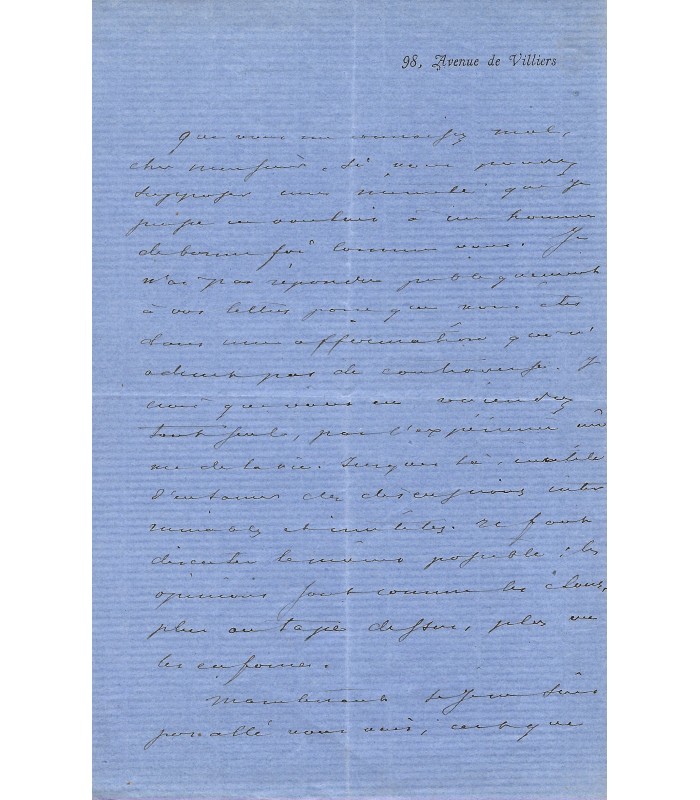 98, Avenue de Villiers
Que vous me connaissez mal,
cher Monsieur, si vous pouvez
supposer une minute que je
puisse en vouloir à un homme
de bonne foi comme vous. Je
n'ai pas répondu publiquement
à vos lettres parce que vous êtes
dans une affirmation qui n'
admet pas de controverse. Je
crois que vous en reviendrez
tout seul, par l'expérience mê
me de la vie. Jusque là, inutile
d'entamer des discussions inter
minables et inutiles. Il faut
discuter le moins possible ; les
opinions sont comme les clous,
plus on tape dessus, plus on
les enfonce.
Maintenant si je ne suis
pas allé vous voir, c'est que